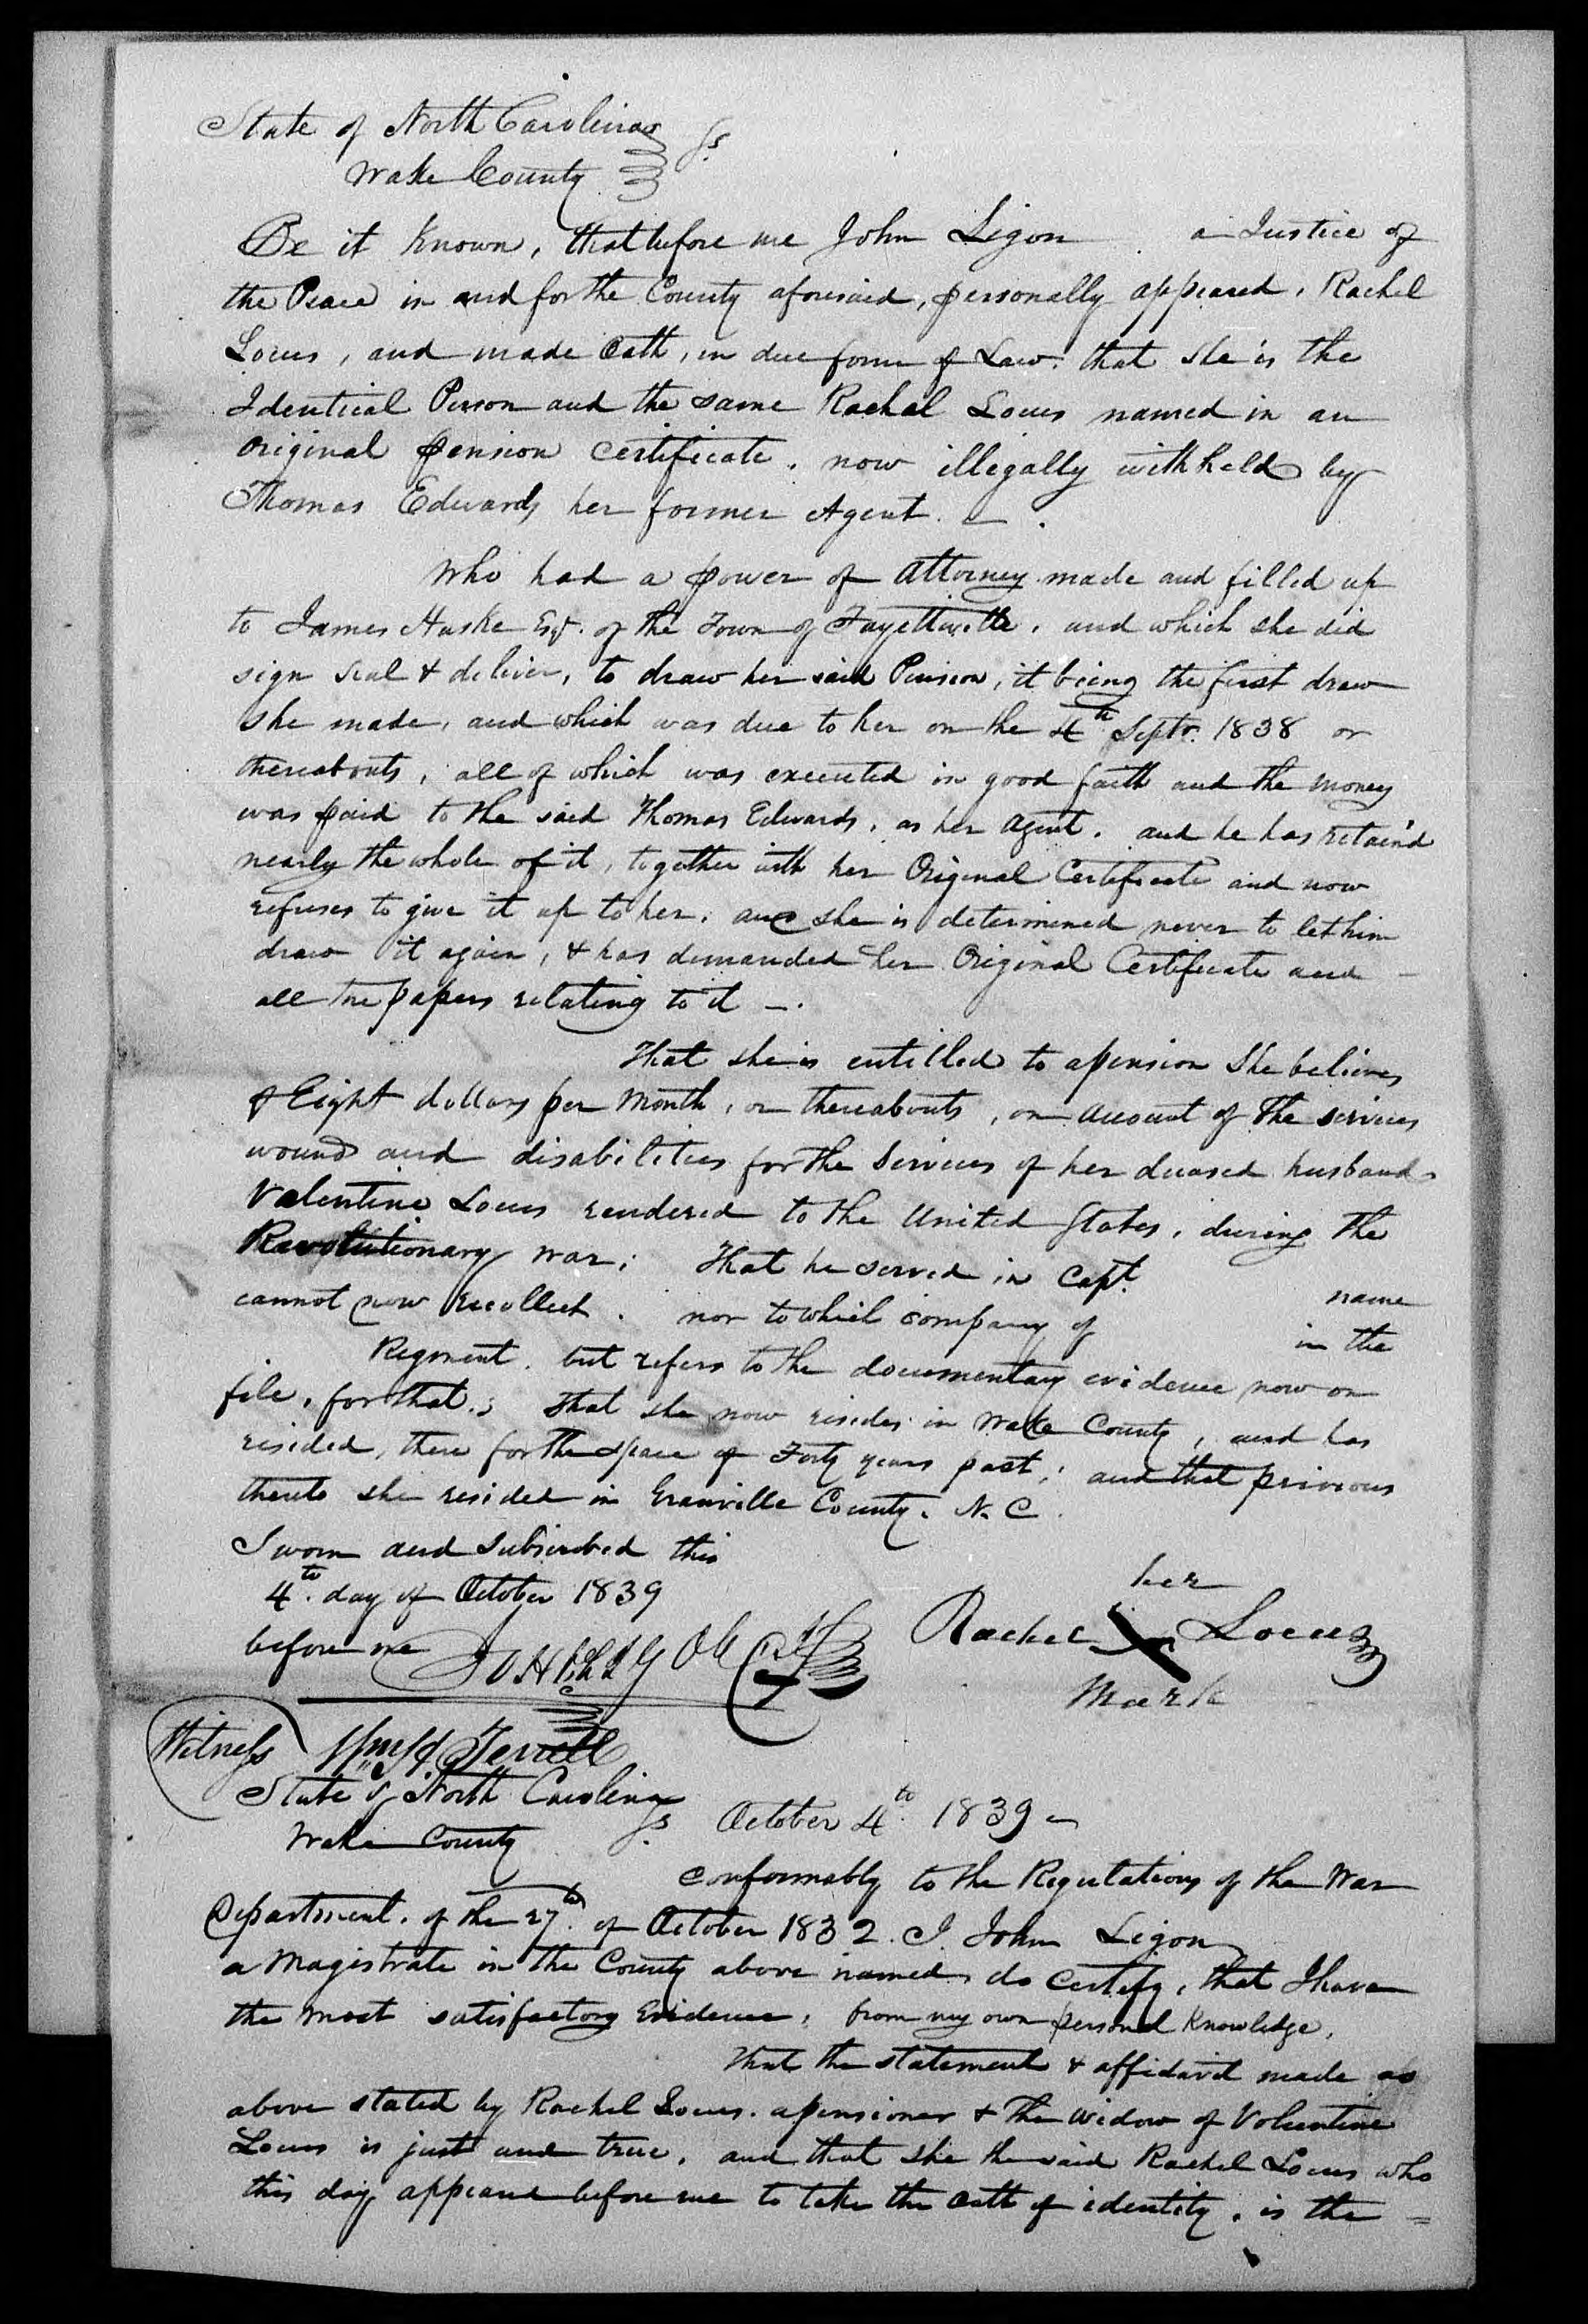 State of North Carolina } Ss
Wake County }
Be it Known, that before me John Ligon a Justice of
the Peace in and for the County aforesaid, personally appeared, Rachel
Locus, and made Oath, in due form of Law, that she is the
Identical Person and the same Rachel Locus named in an
original pension certificate, now illegally withheld by
Thomas Edwards her former Agent. —
Who had a power of Attorney made and filled up
to James Huske Esqr. of the Town of Fayetteville, and which she did
sign seal & deliver, to draw her said Pension, it being the first draw
she made, and which was due to her on the 4th Septr. 1838 or
thereabouts, all of which was executed in good faith and the money
was paid to the said Thomas Edwards, as her Agent. and he has retain'd
nearly the whole of it, together with her Original Certificate and now
refuses to give it up to her, and she is determined never to let him
draw it again, & has demanded her Original Certificate and
all the papers relating to it —.
That she is entitled to a pension She believes
of Eight dollars per Month, or thereabouts, on account of the services
wounds and disabilities for the Services of her deceased husband
Valentine Locus rendered to the United States, during the
Revolutionary War; That he served in Capt. name
cannot now recollect. nor to which company of in the
Regiment. but refers to the documentary evidence now on
file, for that; That she now resides in Wake County, and has
resided, there for the space of Forty years past; and that previous
thereto she resided in Granville County. N. C.
Sworn and Subscribed this
4th. day of October 1839
before me
her
Rachel X Locus
Mark
Witness Terrell
State of North Carolina Ss October 4th. 1839
Wake County
Conformably to the Regulations of the War
Department, of the 27th of October 1832. I John Ligon
a Magistrate in the County above named, do certify, that I have
the most satisfactory Evidence, from my own personal Knowledge,
That the statement & affidavit made as
above stated by Rachel Locus. a pensioner & the Widow of Volentine
Locus is just and true, and that she the said Rachel Locus who
this day appeared before me to take the oath of identity, is the =